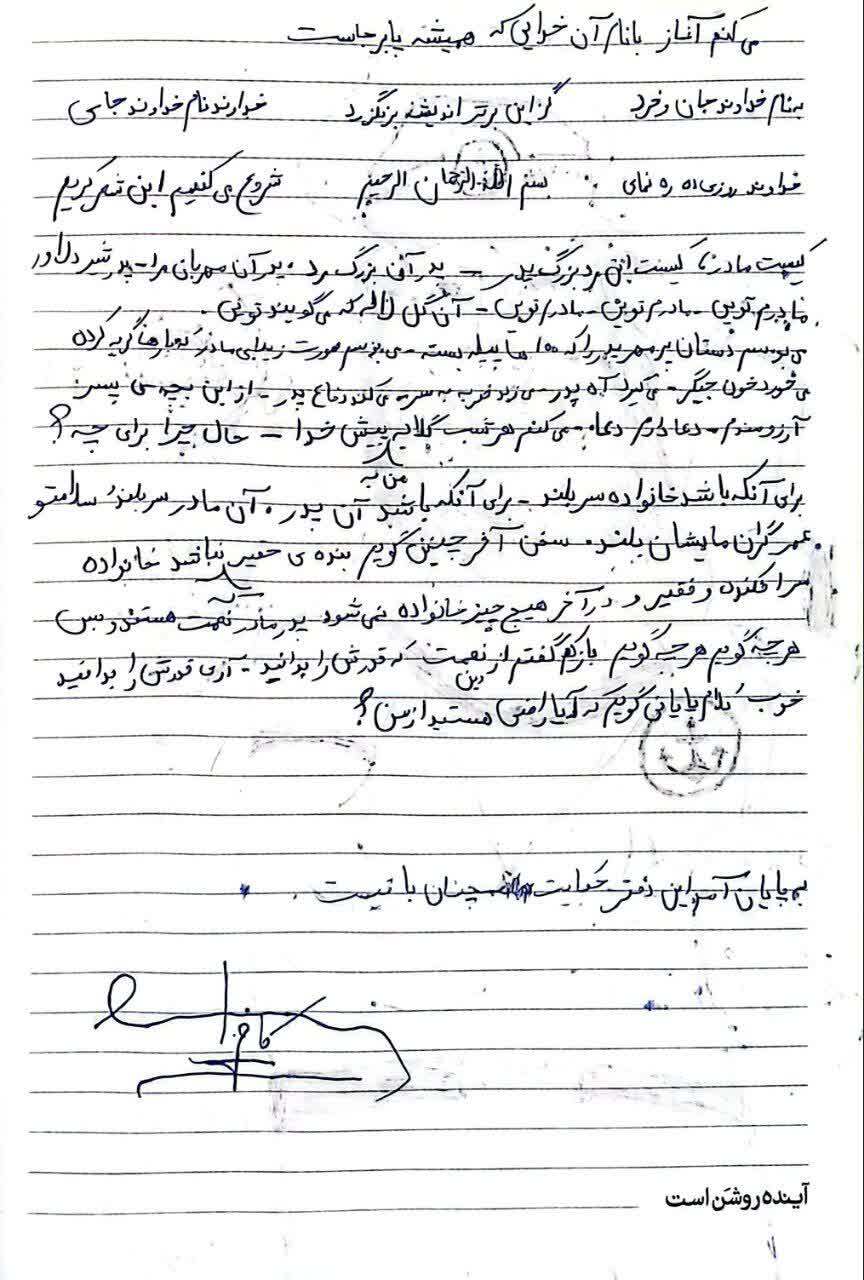 می کنم آغاز بانام آن خدایی که همیشه پابرجاست
به نام خداوند جان و خرد کزاین برتر اندیشه برنگزرد خداوند نام خداوند جای
خداوند روزی ده ره نمای بسم الله الرحمان الرحیم شروع می کنیم این شعر کریم
کیست مادر؟ کیست این مرد بزرگ پدر - پدر آن بزرگ مرد. پدر آن مهربان مرا - پدر شیر دلاور
مادرم تویی - مادرم تویی - مادرم تویی - آن گل لاله که می گویند تونی.
می بوسم دستان پر مهر پدر را که 100 ها پیله بسته - می بوسم صورت زیبای مادر که بارها گریه کرده
می خورد خون جیگر - می گیرد آه پدر - می زند ضربه به سر - می کند دفاع پدر - از این بچه ی پسر
آرزومندم - دعا دارم دعا. می کنم هر شب گلایه پیش خدا - حال چرا برای چه؟
برای آنکه باشد خانواده سر بلند - برای آنکه من به باشد آن پدر. آن مادر سر بلند سلامتو
عمر گران مایشان بلند. سخن آخر چنین گویم بنده ی حقیر نباشد خانواده
سرافکنده و فقیر و در آخر هیچ چیز خانواده نمی شود پدر مادر نعمت هستند و بس
هر چه گویم هر چه گویم بازکم گفتم از این نعمت که قدرش را بدانید - آری قدرش را بدانید
خوب کلام پایانی گویم که آیا راضی هستید از من؟
به پایان آمد این دفتر حکایت همچنان باقیست
آینده روشن است
۷